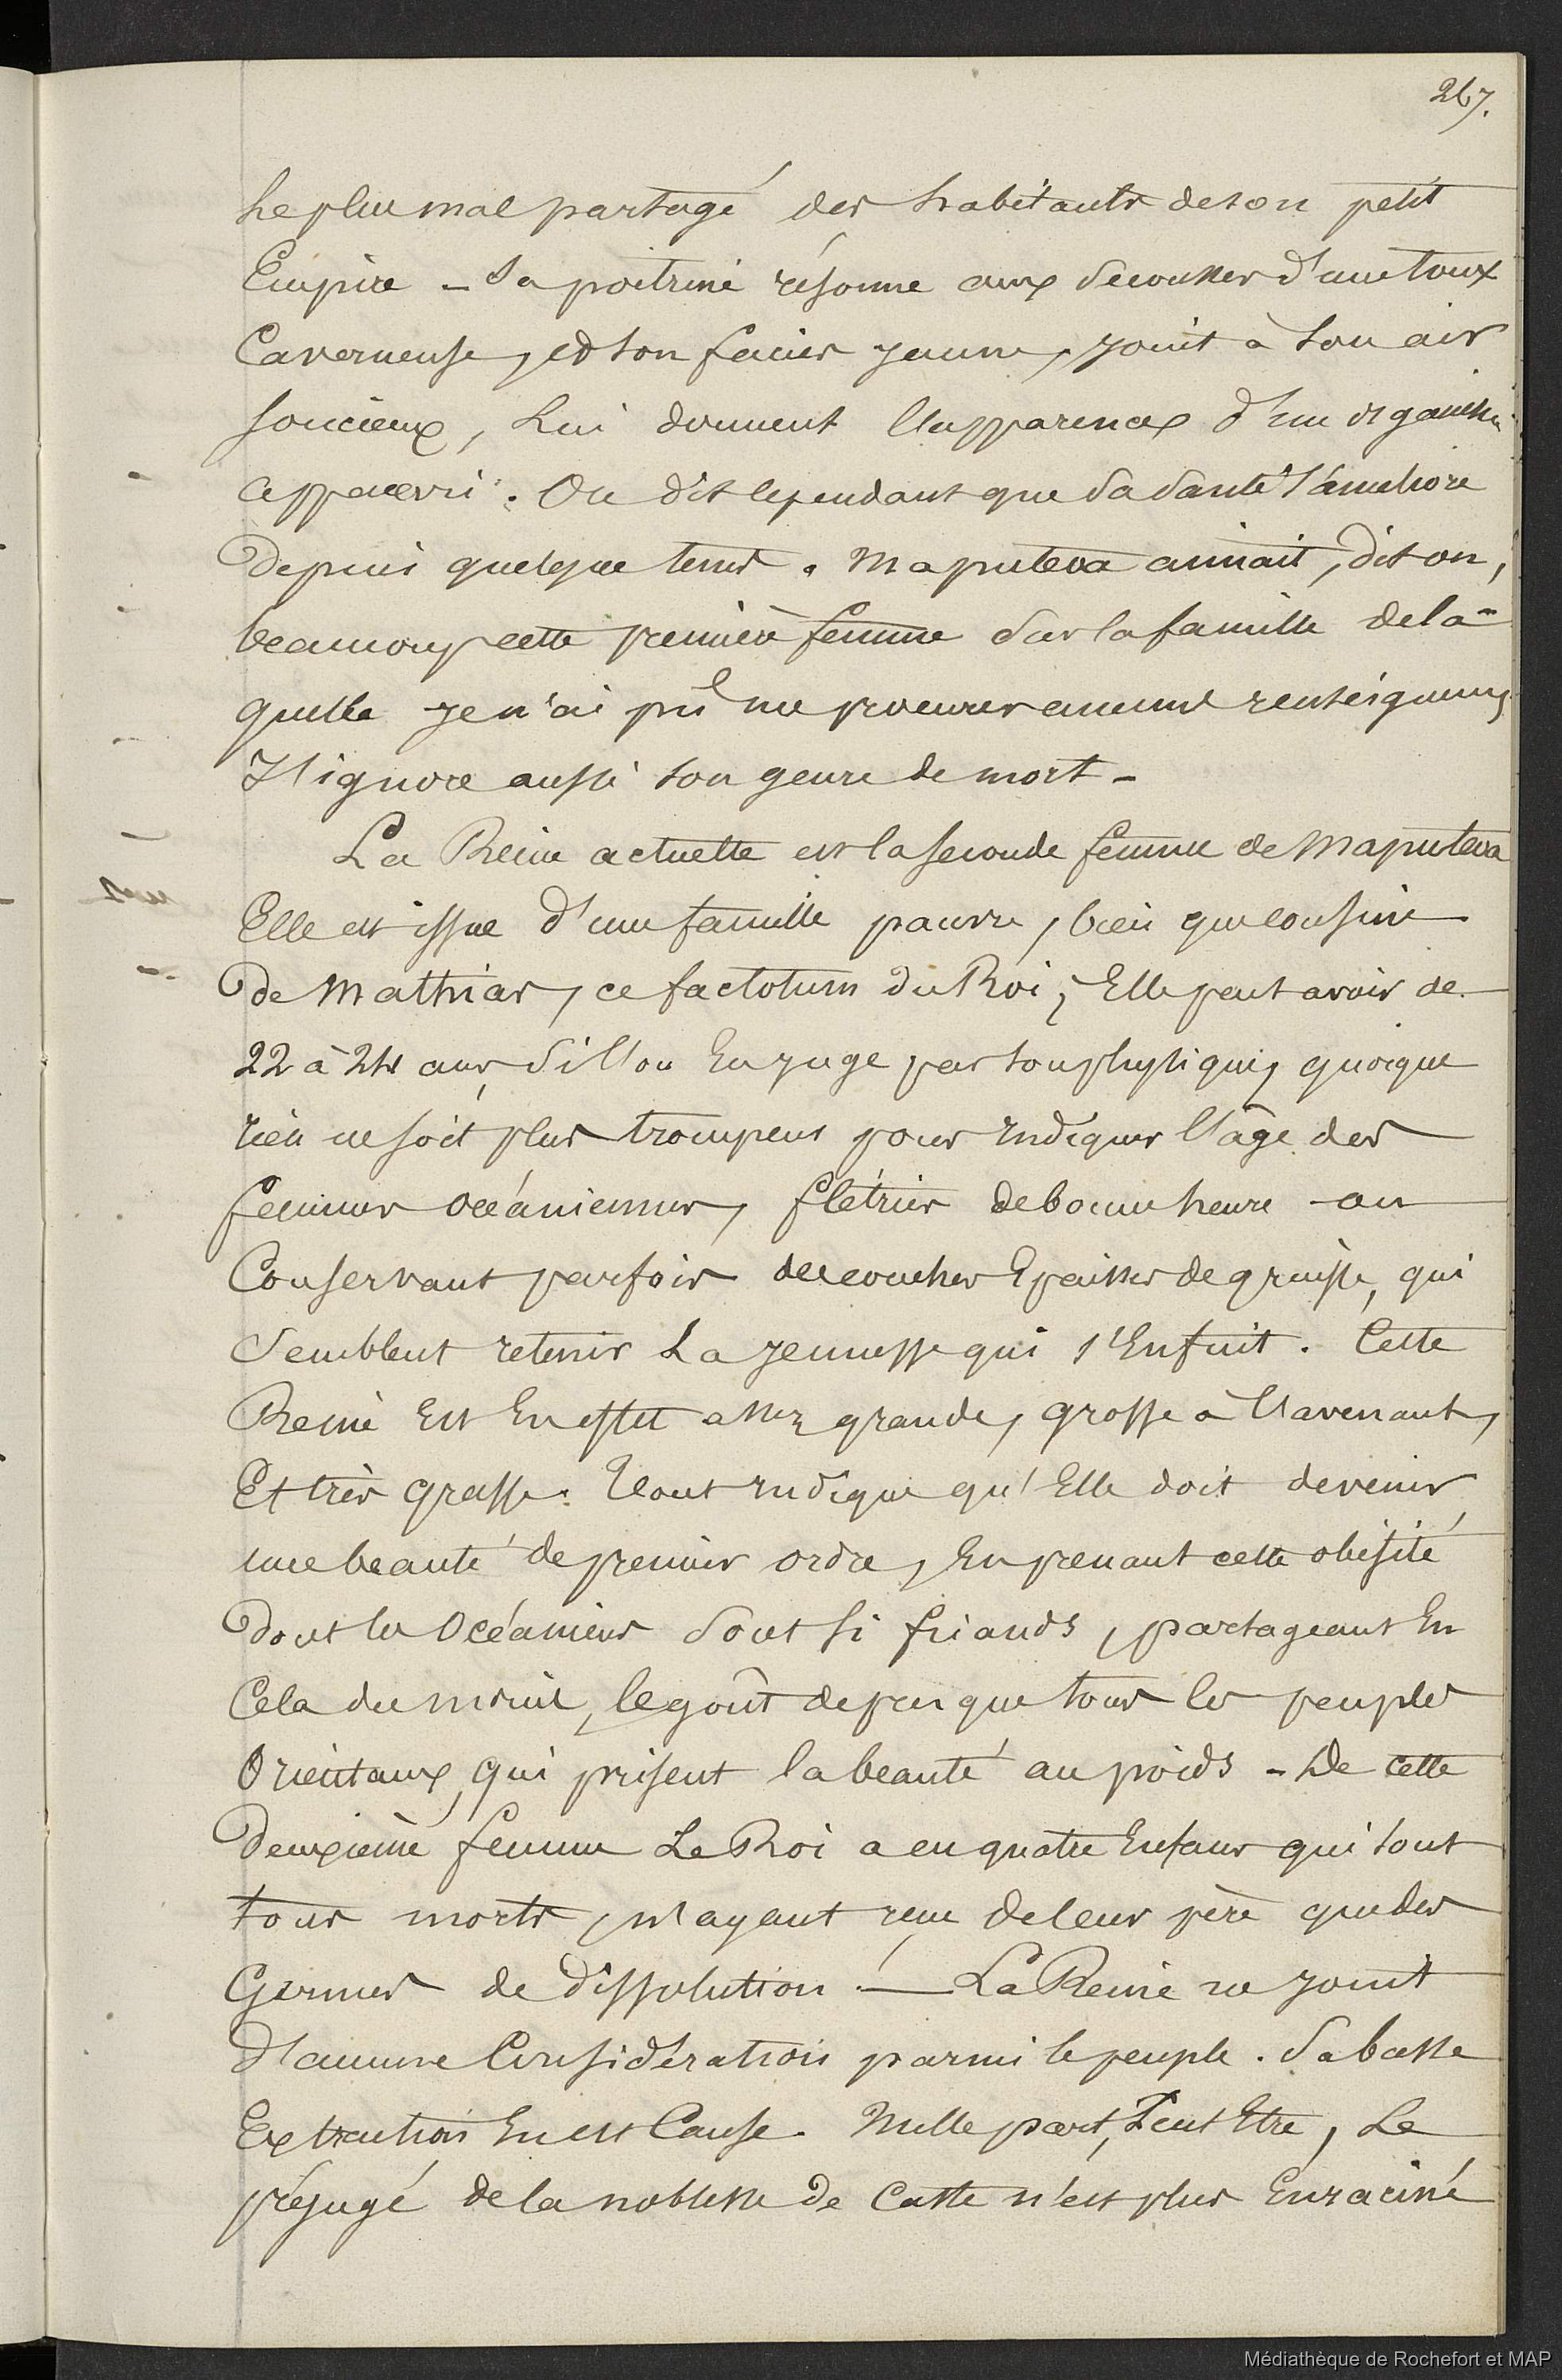 267.
Le plus mal partagé des habitants de son petit
Empire - Sa poitrine résonne aux secousses d'une toux
Caverneuse, et son facies jaune, joint à son air
soucieux, lui donnent l'apparence d'un organisme
appauvri. On dit cependant que sa santé s'améliore
Depuis quelque tems. Maputeva aimait, dit on,
beaucoup cette première femme sur la famille de la-
quelle je n'ai pû me procurer aucuns renseignemens
J'ignore aussi son genre de mort -
La Reine actuelle est la seconde femme de Maputeva
Elle est issue d'une famille pauvre, bien que cousine
de Mathias, ce factotum du Roi; Elle peut avoir de
22 à 24 ans, si l'on En juge par son physique, quoique
rien ne soit plus trompeur pour Indiquer l'âge des
femmes océaniennes, flétries de bonne heure ou
Conservant parfois des couches Epaisses de graisse, qui
Semblent retenir La jeunesse qui s'Enfuit. Cette
Reine Est En effet assez grande, grosse à l'avenant,
Et très grasse. Tout Indique qu'Elle doit devenir
une beauté de premier ordre, En prenant cette obésité
Dont les Océaniens sont si friands, partageant En
Cela du moins, le goût de presque tous les peuples
Orientaux, qui prisent la beauté au poids - De cette
Deuxième femme Le Roi a eu quatre Enfans qui sont
tous morts, n'ayant reçu de leur père que des
Germes de dissolution ! — La Reine ne jouit
d'aucune Considération parmi le peuple. Sa basse
Extraction En est Cause. Nulle part, Peut Etre, Le
préjugé de la noblesse de Caste n'est plus Enraciné
Médiathèque de Rochefort et MAP